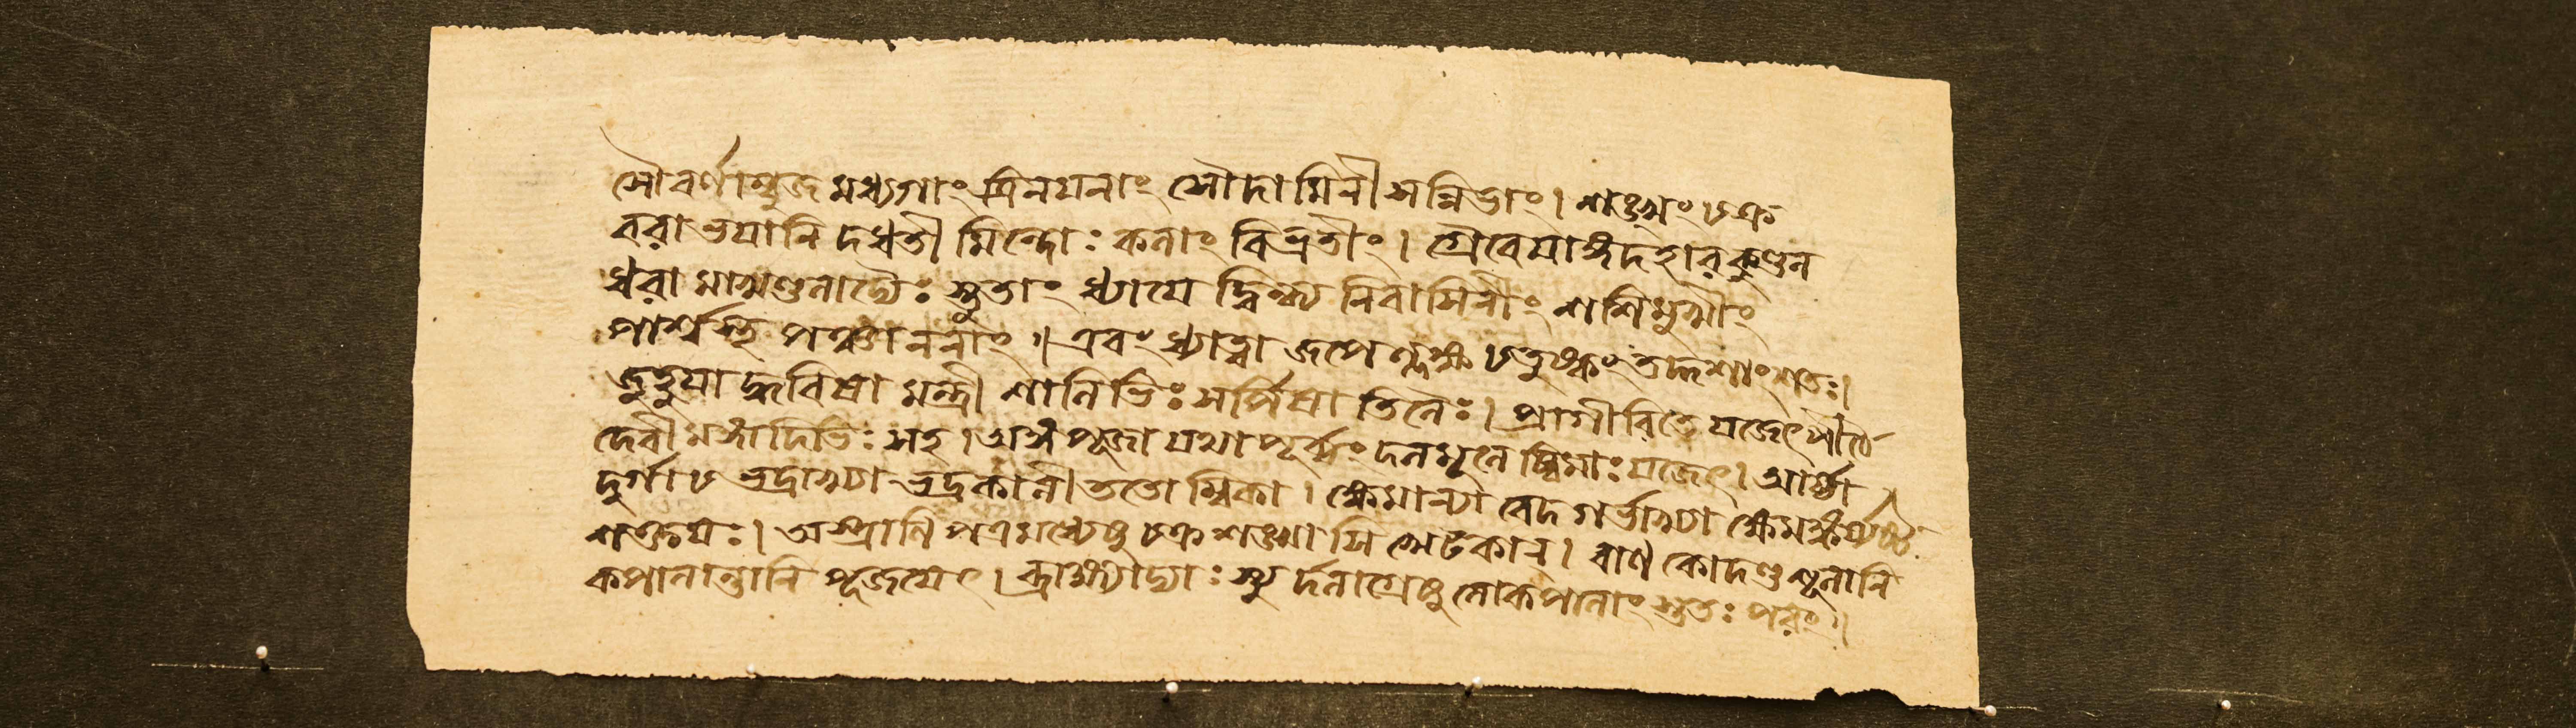 সৌবর্ণাম্বুজমধ্যগাং ত্রিনয়নাং সৌদামিনীসন্নিভাং। শঙ্খং চক্র
বরাভয়ানি দধতী মিন্দোঃ কলাং বিভ্রতীং। গ্রৈবেয়াঙ্গদহারকুণ্ডল
ধরা মাখণ্ডলাদ্যৈঃ স্তুতাং ধ্যায়ে দ্বিন্ধ্য নিবাসিনীং শশিমুখীং
পার্শ্বস্থ পঞ্চাননাং॥ এবং ধ্যাত্বা জপেল্লক্ষ চতুষ্কং তদ্দশাংশতঃ।
জুহুয়া দ্ধবিষা মন্ত্রী শালিভিঃ সর্পিষা তিলৈঃ। প্রাগীরিতে যজেৎ পীঠে
দেবীমঙ্গাদিভিঃ সহ। অঙ্গপূজা যথাপূর্ব্বং দলমূলে ষ্বিমাঃ যজেৎ। আর্য্যা
দুর্গা চ ভদ্রাখ্যা ভদ্রকালী ততোম্বিকা। ক্ষেমান্যা বেদগর্ভাখ্যা ক্ষেমঙ্কর্য্যষ্ট
শক্তয়ঃ। অস্ত্রাণি পত্রমধ্যেষু চক্রশঙ্খাসি খেটকান্। বাণ কোদণ্ড শূলানি
কপালান্তানি পূজয়েৎ। ব্রাহ্ম্যাদ্যাঃ স্যু র্দলাগ্রেষু লোকপালাং স্ততঃ পরং॥